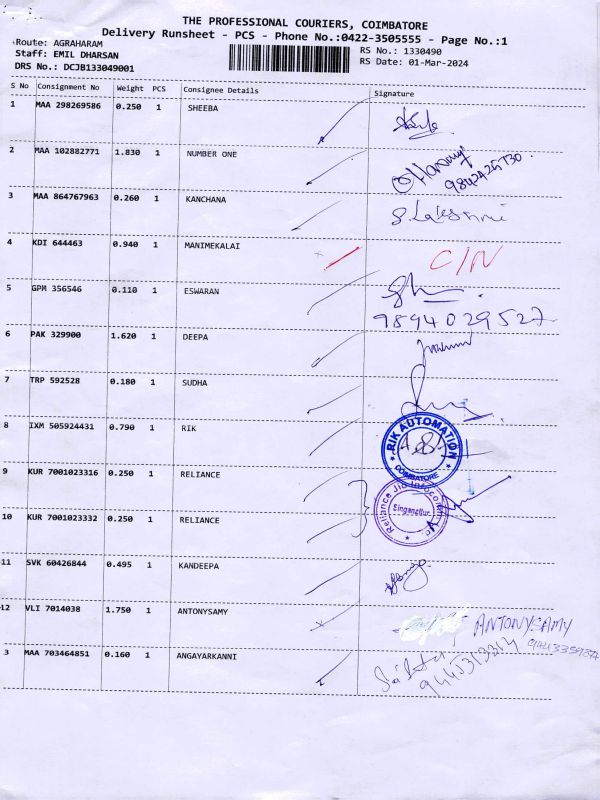 THE PROFESSIONAL COURIERS, COIMBATORE
Delivery Runsheet - PCS - Phone No.:0422-3505555 - Page No.:1
Route: AGRAHARAM
RS No.: 1330490
Staff: EMIL DHARSAN
RS Date: 01-Mar-2024
DRS No.: DCJB133049001
S No Consignment No Weight PCS Consignee Details Signature
1 MAA 298269586 0.250 1 SHEEBA
2 MAA 102882771 1.830 1 NUMBER ONE
9842425730
3 MAA 864767963 0.260 1 KANCHANA
4 KDI 644463 0.940 1 MANIMEKALAI C/N
5 GPM 356546 0.110 1 ESWARAN
9894029527
6 PAK 329900 1.620 1 DEEPA
7 TRP 592528 0.180 1 SUDHA
8 IXM 505924431 0.790 1 RIK
RIK AUTOMATION
COIMBATORE
9 KUR 7001023316 0.250 1 RELIANCE
Reliance Jio Infocomm
Singanallur
10 KUR 7001023332 0.250 1 RELIANCE
11 SVK 60426844 0.495 1 KANDEEPA
12 VLI 7014038 1.750 1 ANTONYSAMY ANTONYSAMY
3 MAA 703464851 0.160 1 ANGAYARKANNI